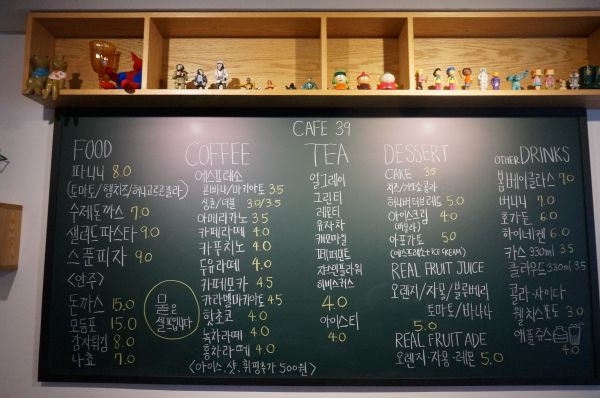 CAFE 39
FOOD
파니니 8.0
(토마토/햄치즈/허니고르곤졸라)
수제돈까스 9.0
샐러드파스타 9.0
스푼피자 9.0
<안주>
돈까스 15.0
모듬포 15.0
감자튀김 8.0
나쵸 7.0
물은
셀프입니다
COFFEE
에스프레소
콘빠나/마키아토 3.5
싱글/더블 3.0/3.5
아메리카노 3.5
카페라떼 4.0
카푸치노 4.0
두유라떼 4.0
카페모카 4.5
카라멜마키아토 4.5
핫초코 4.0
녹차라떼 4.0
홍차라떼 4.0
<아이스,샷,휘핑추가 500원>
TEA
얼그레이
그린티
레몬티
유자차
캐모마일
페퍼민트
쟈스민플라워
히비스커스
4.0
아이스티
4.0
DESSERT
CAKE 3.5
치즈/가또쇼콜라
허니버터브레드 5.0
아이스크림 4.0
(바닐라)
아포가토 5.0
(에스프레소+ICE CREAM)
REAL FRUIT JUICE
오렌지/자몽/블루베리
토마토/바나나
5.0
REAL FRUIT ADE
오렌지·자몽·레몬 5.0
OTHER DRINKS
봄베이글라스 7.0
버니니 7.0
호가든 6.0
하이네켄 6.0
카스 330ml 3.5
클라우드 330ml 3.5
콜라·사이다
웰치스포도 3.0
애플쥬스
4.0